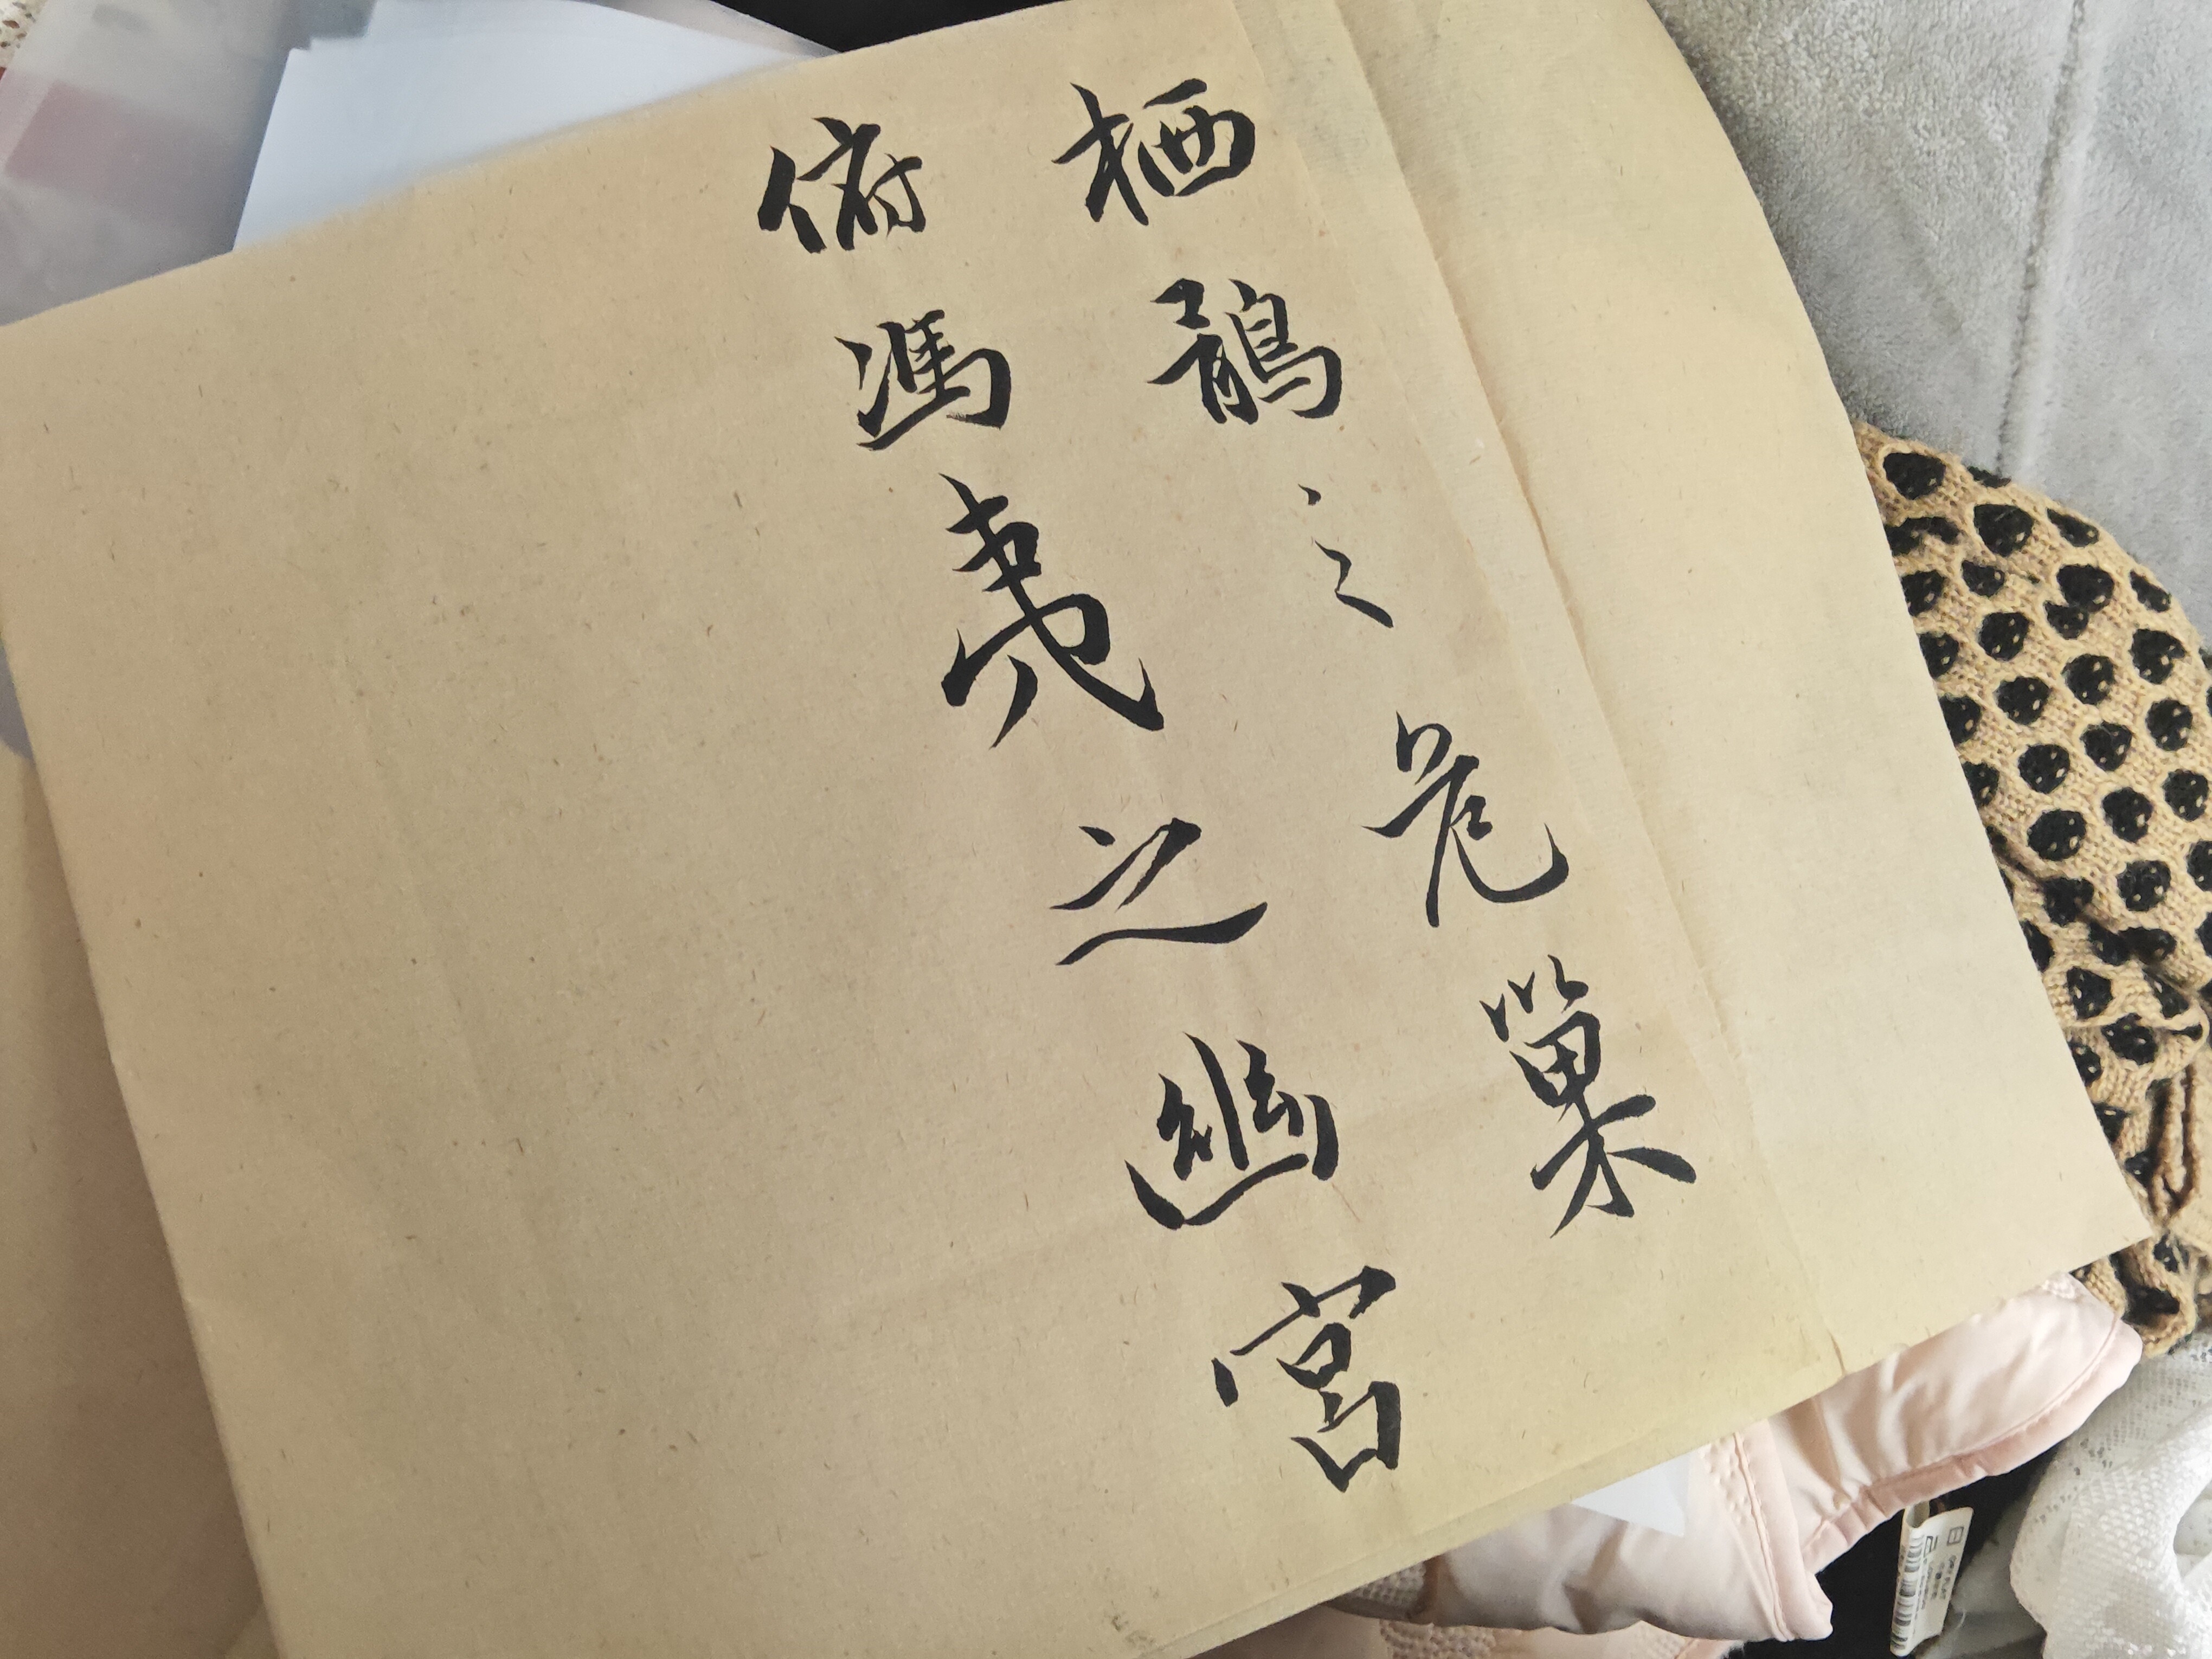 栖鶻之危巢
俯馮夷之幽宮